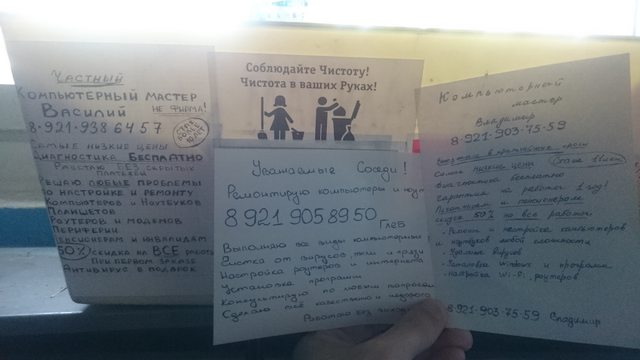 Частный
Компьютерный мастер
Василий
не фирма!
8-921-938 6457
Самые низкие цены
Диагностика бесплатно
Работаю без скрытых
платежей
Решаю любые проблемы
по настройке и ремонту
Компьютеров и ноутбуков
Планшетов
Роутеров и модемов
Периферии
Пенсионерам и инвалидам
50% скидка на все работы
при первом заказе
Антивирус в подарок
Соблюдайте Чистоту!
Чистота в ваших Руках!
Уважаемые Соседи!
Ремонтирую компьютеры и ноут
8 921 905 89 50
Глеб
Выполняю все виды компьютерных
Чистка от вирусов, пыли и грязи
Настройка роутеров и интернета
Установка программ
Консультирую по любым вопросам
Сделаю всё качественно и недорого
Работаю без
Компьютерный
мастер
Владимир
8-921-903-75-59
низкие цены
Стаж 11 лет
Диагностика бесплатно
Гарантия на работы 1 год!
скидка 50% на все работы.
- Ремонт и настройка компьютеров
и ноутбуков любой сложности
- Удаление вирусов
- Установка windows и программ
- настройка Wi-Fi, роутеров
8-921-903-75-59 Владимир